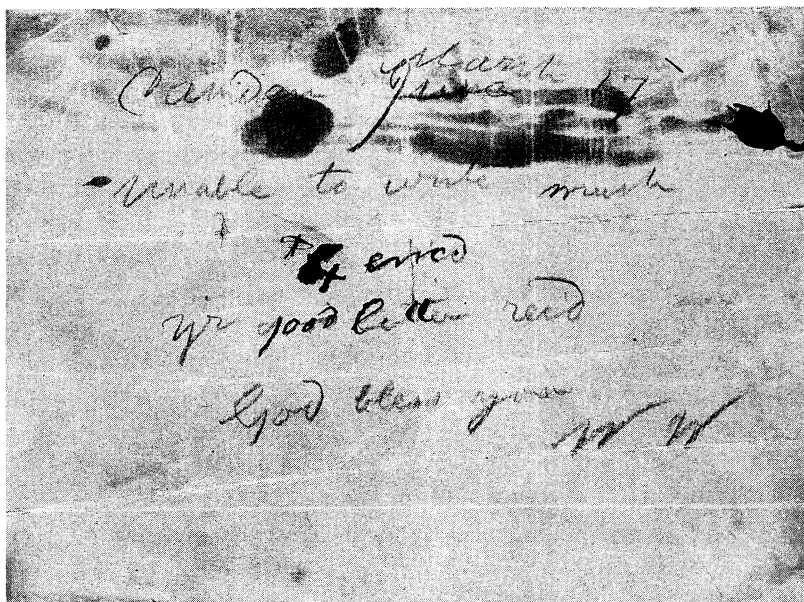 March
Camden June 17
Unable to write much
$4 encd
y'r good letter rec'd
God bless you
W W